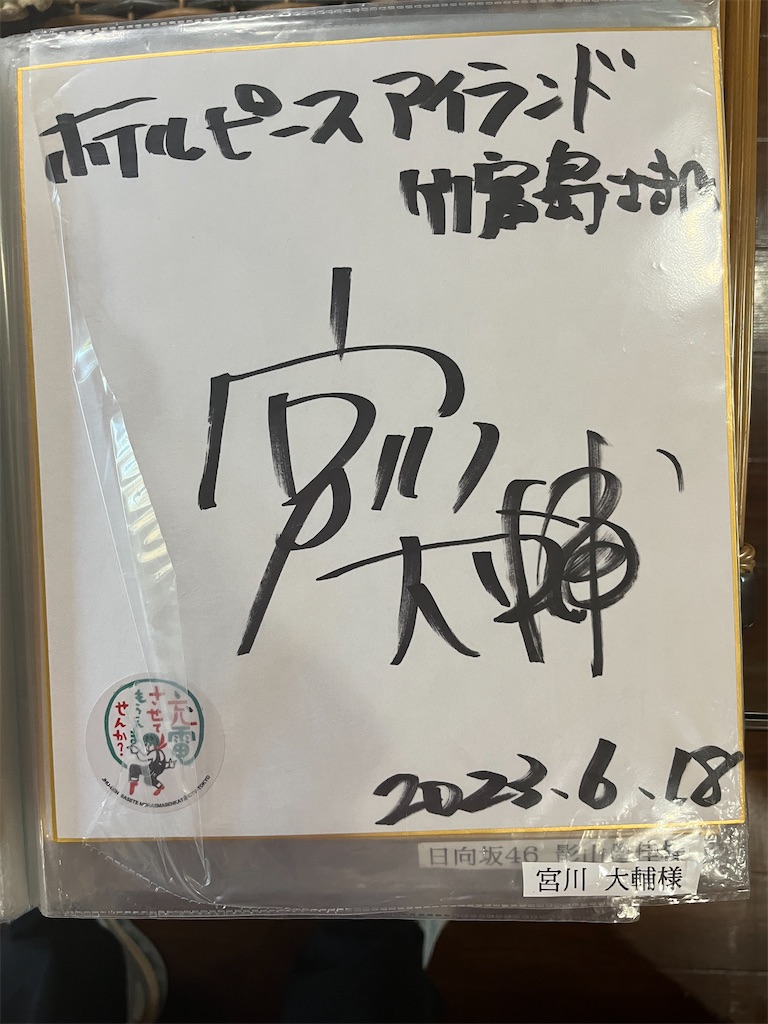 ホテルピースアイランド
竹富島さま
宮川
大輔
充電
させて
もらえま
せんか?
2023.6.18
日向坂46 影山優佳様
宮川 大輔様